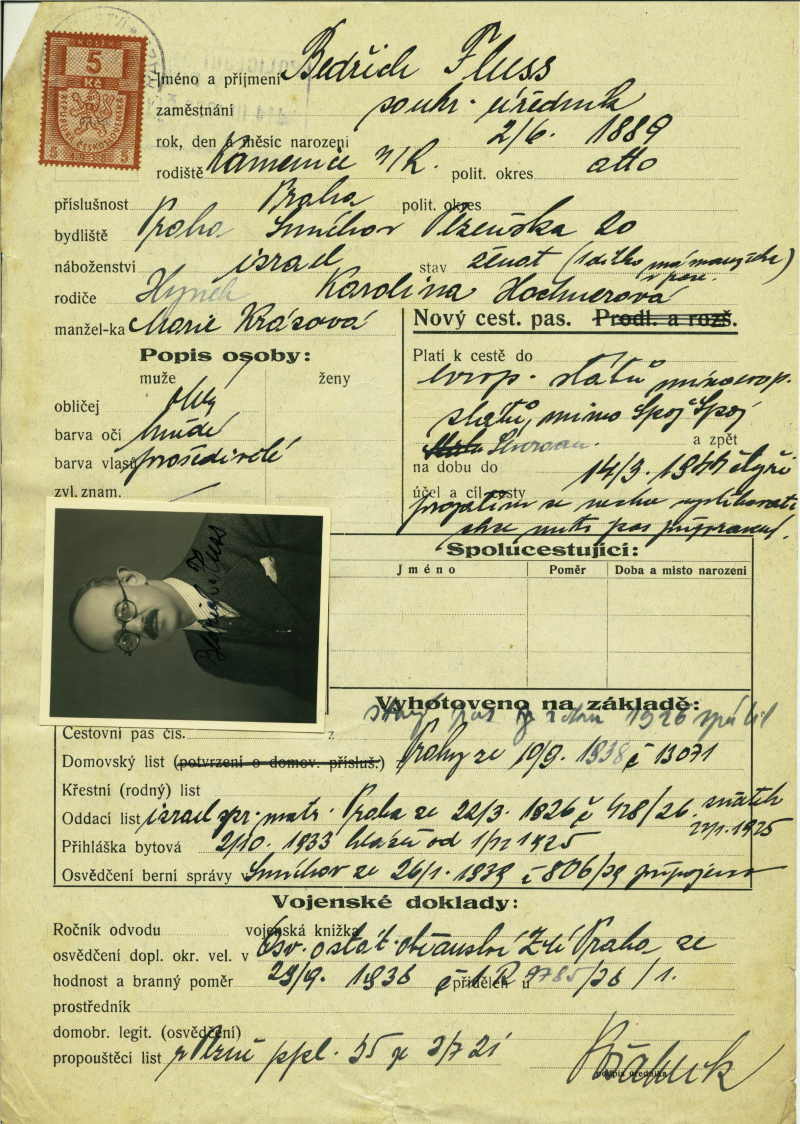 KOLEK
5
Kč
REPUBLIKA ČESKOSLOVENSKÁ
5 5
Jméno a příjmení Bedřich Fluss
zaměstnání soukr. úředník
rok, den a měsíc narození 2/6. 1889
rodiště Kamenice n/L. polit. okres dtto
příslušnost Praha polit. okres
bydliště Praha Smíchov Plzeňska 20
náboženství israel stav ženat (1 dítko
rodiče Hynek Karolina Hochnerová
manžel-ka Marie Krásová
Nový cest. pas. Prodl. a rozš.
Popis osoby:
muže ženy
obličej
barva očí hnědé
barva vlasů prošedivělé
zvl. znam. —
Platí k cestě do
evrop. států mimoevrop.
států, mimo Spoj Spoj
a zpět
na dobu do 14/3. 1944 čtyři
účel a cíl cesty
Bedřich Fluss
Spolucestující:
Jméno Poměr Doba a místo narození
Vyhotoveno na základě:
starý pas z roku 1926
Cestovní pas čís. z
Domovský list (potvrzení o domov. přísluš.) Prahy ze 19/9. 1938 č 13071
Křestní (rodný) list
Oddací list israel Praha ze 22/3. 1926 č 428/26.
Přihláška bytová 2/10. 1933 od 1925
Osvědčení berní správy Smíchov ze 26/1. 1939 č 806/39 připojeno
Vojenské doklady:
Ročník odvodu vojenská knížka
osvědčení dopl. okr. vel. v Osv. o stát. občanství Praha ze
hodnost a branný poměr 29/9. 1936 č přidělen u /36/1.
prostředník
domobr. legit. (osvědčení)
propouštěcí list v Plzni ppl. 35 3/7 21
podpis úředníka